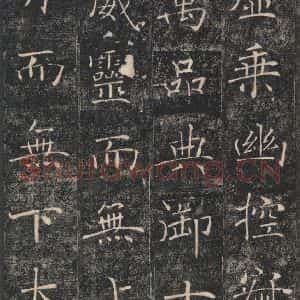 虛乘幽控寂
萬品典御十
威靈而無上
力而無下大
Shufawang.CN